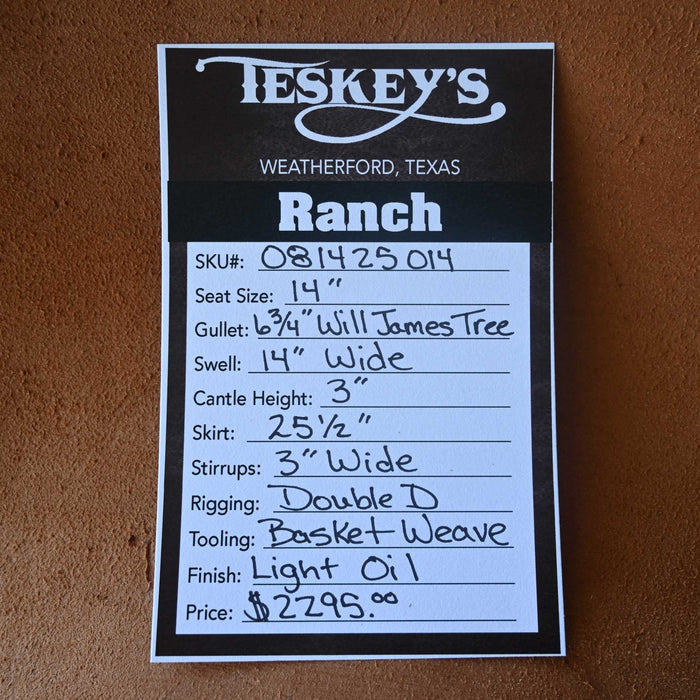 TESKEY'S
WEATHERFORD, TEXAS
Ranch
SKU#: 081425014
Seat Size: 14"
Gullet: 6 3/4" Will James Tree
Swell: 14" Wide
Cantle Height: 3"
Skirt: 25 1/2"
Stirrups: 3" Wide
Rigging: Double D
Tooling: Basket Weave
Finish: Light Oil
Price: $2295.00